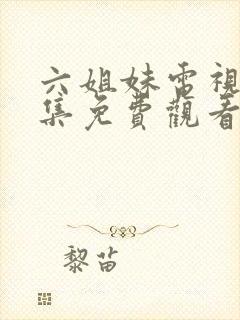 六姐妹電視
集免費觀看
黎苗